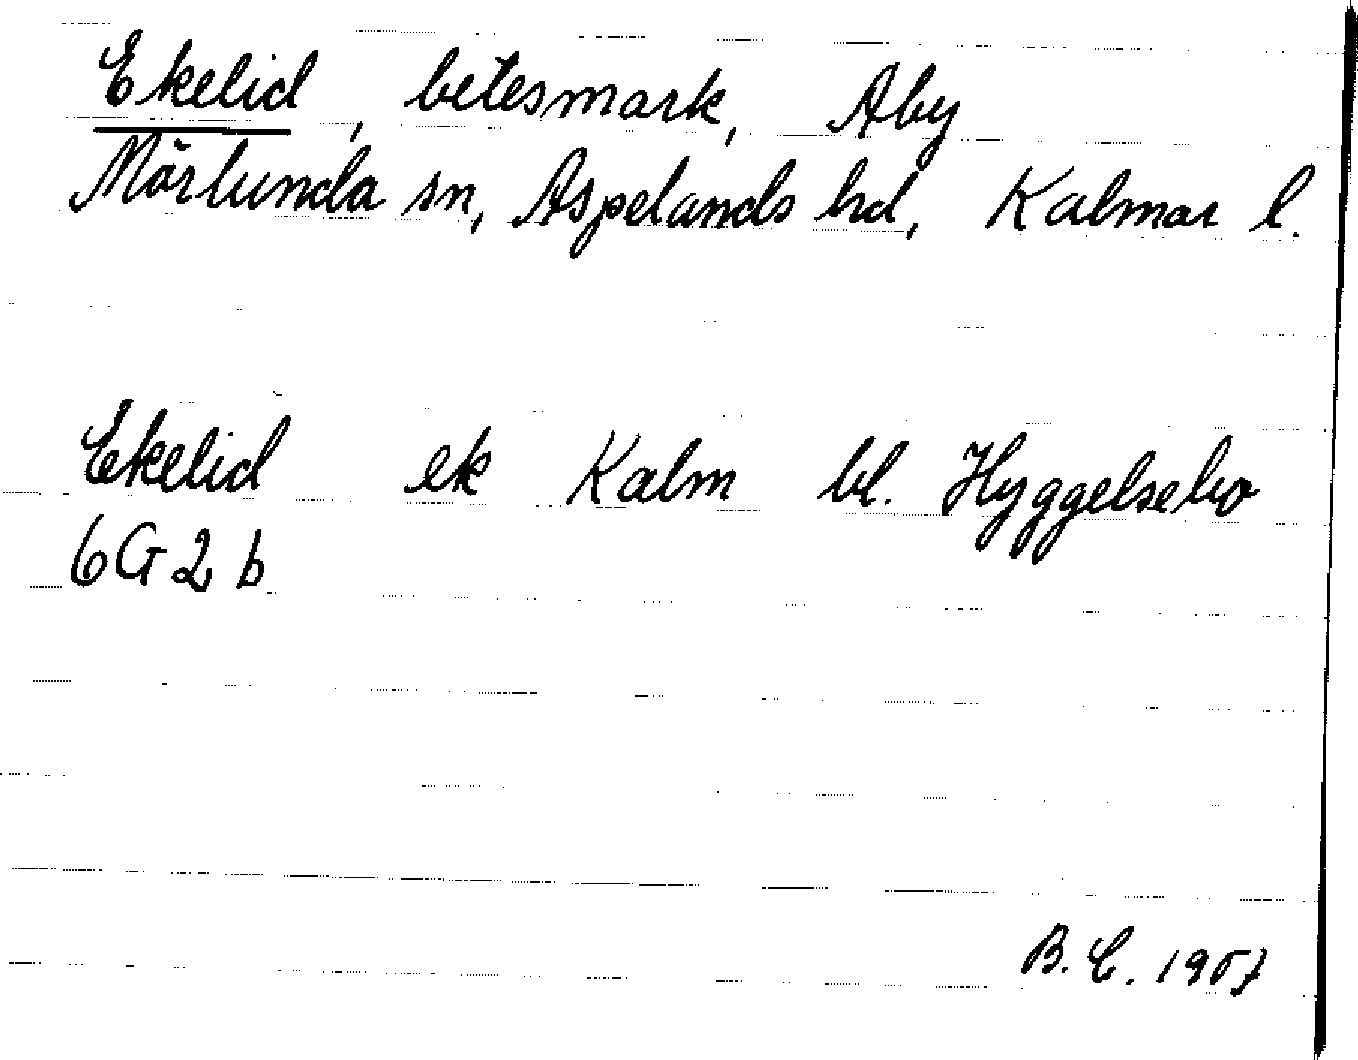 Ekelid, betesmark, Aby
Mörlunda sn, Aspelands hd, Kalmar l.
Ekelid ek Kalm bl. Hyggelsebo
6G2b
B.C. 1957